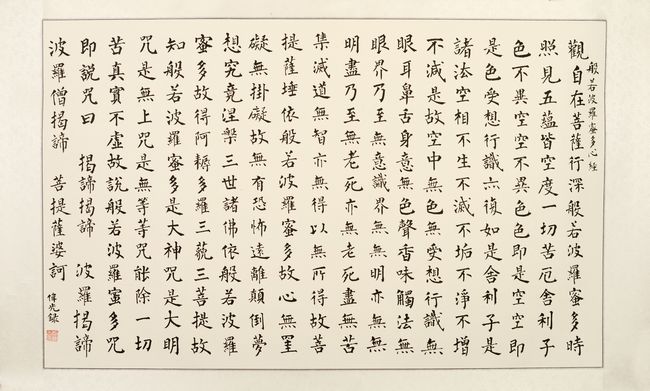 般若波羅蜜多心經
觀自在菩薩行深般若波羅蜜多時
照見五蘊皆空度一切苦厄舍利子
色不異空空不異色色即是空空即
是色受想行識亦復如是舍利子是
諸法空相不生不滅不垢不淨不增
不減是故空中無色無受想行識無
眼耳鼻舌身意無色聲香味觸法無
眼界乃至無意識界無無明亦無無
明盡乃至無老死亦無老死盡無苦
集滅道無智亦無得以無所得故菩
提薩埵依般若波羅蜜多故心無罣
礙無掛礙故無有恐怖遠離顛倒夢
想究竟涅槃三世諸佛依般若波羅
蜜多故得阿耨多羅三藐三菩提故
知般若波羅蜜多是大神咒是大明
咒是無上咒是無等等咒能除一切
苦真實不虛故說般若波羅蜜多咒
即說咒曰 揭諦揭諦 波羅揭諦
波羅僧揭諦 菩提薩婆訶
偉光錄